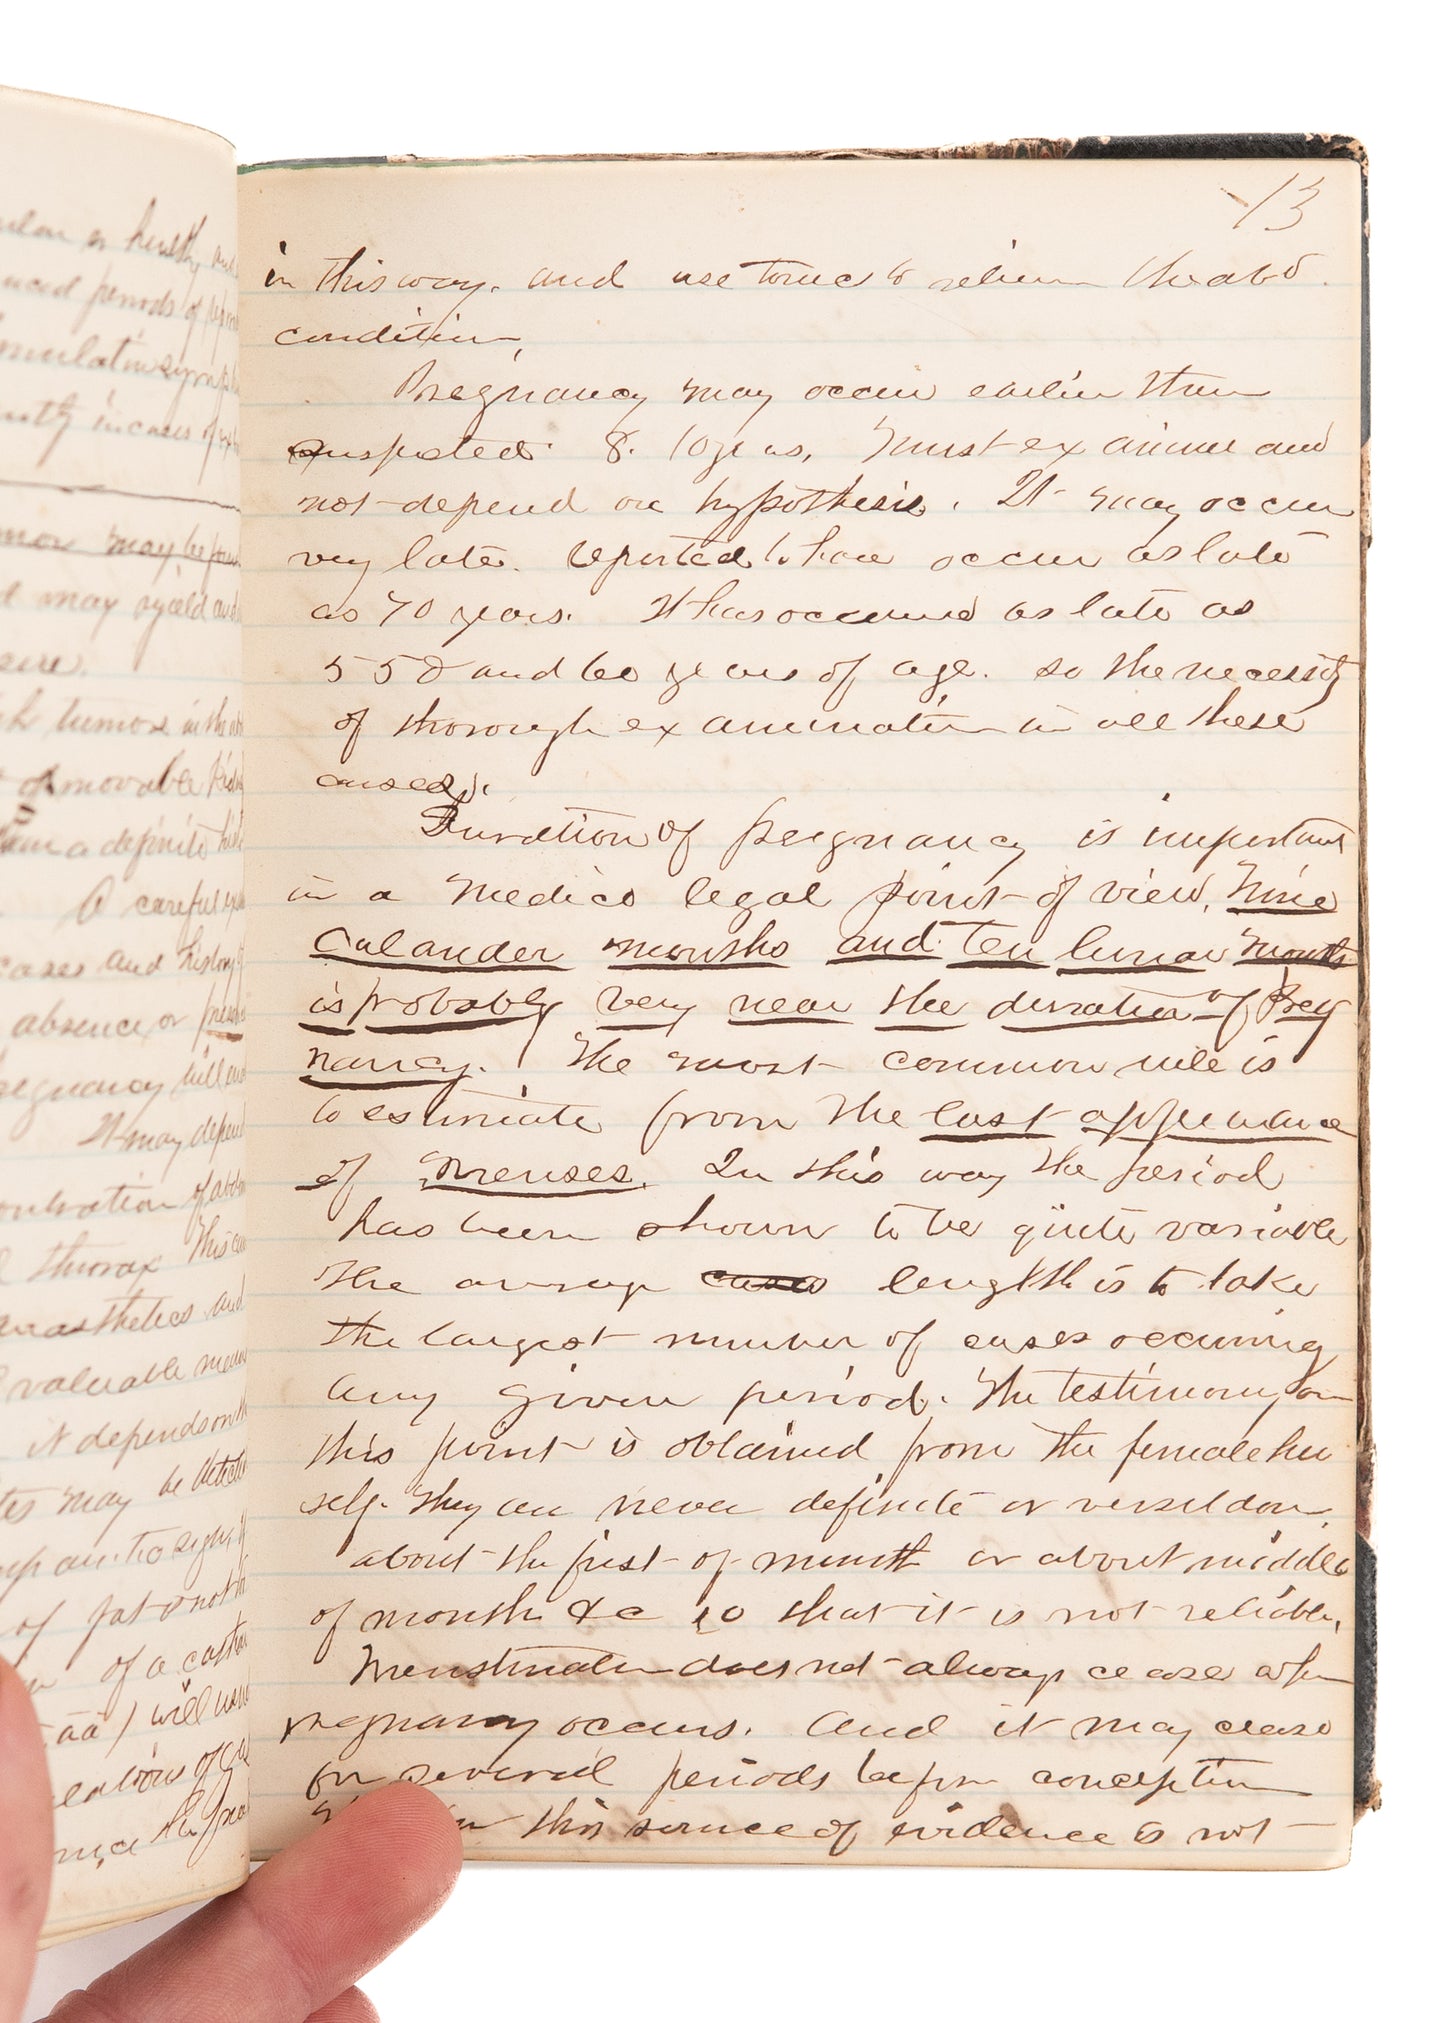 13
in this way. and use tonics to relieve the abd
condition,
Pregnancy may occur earlier than
suspected 8. 10 years. Must examine and
not depend on hypothesis. It may occur
very late. reported to have occur as late
as 70 years. It has occurred as late as
55 and 60 years of age. so the necessity
of thorough examination in all these
cases.
Duration of pregnancy is important
in a Medico legal point of view. Nine
Calander months and ten lunar months
is probably very near the duration of Preg
nancy. The most common rule is
to estimate from the last appearance
of Menses. In this way the period
has been shown to be quite variable
The average cases length is to take
the largest number of cases occurring
any given period. The testimony on
this point is obtained from the female her
self. They are never definite or very seldom,
about the first of month or about middle
of month &c so that it is not reliable.
Menstruation does not always cease when
pregnancy occurs. And it may cease
for several periods before conception
this source of evidence is not
nced periods of
mulative symp
in cases of
mor may be found
may yield and
tumors in the
of movable
a definite
A careful
cases and history
absence or
pregnancy will
It may depend
of abd
thorax This can
anaesthetics and
valuable means
it depends on the
may be detected
of fat & not
of a
āā) will
of
the